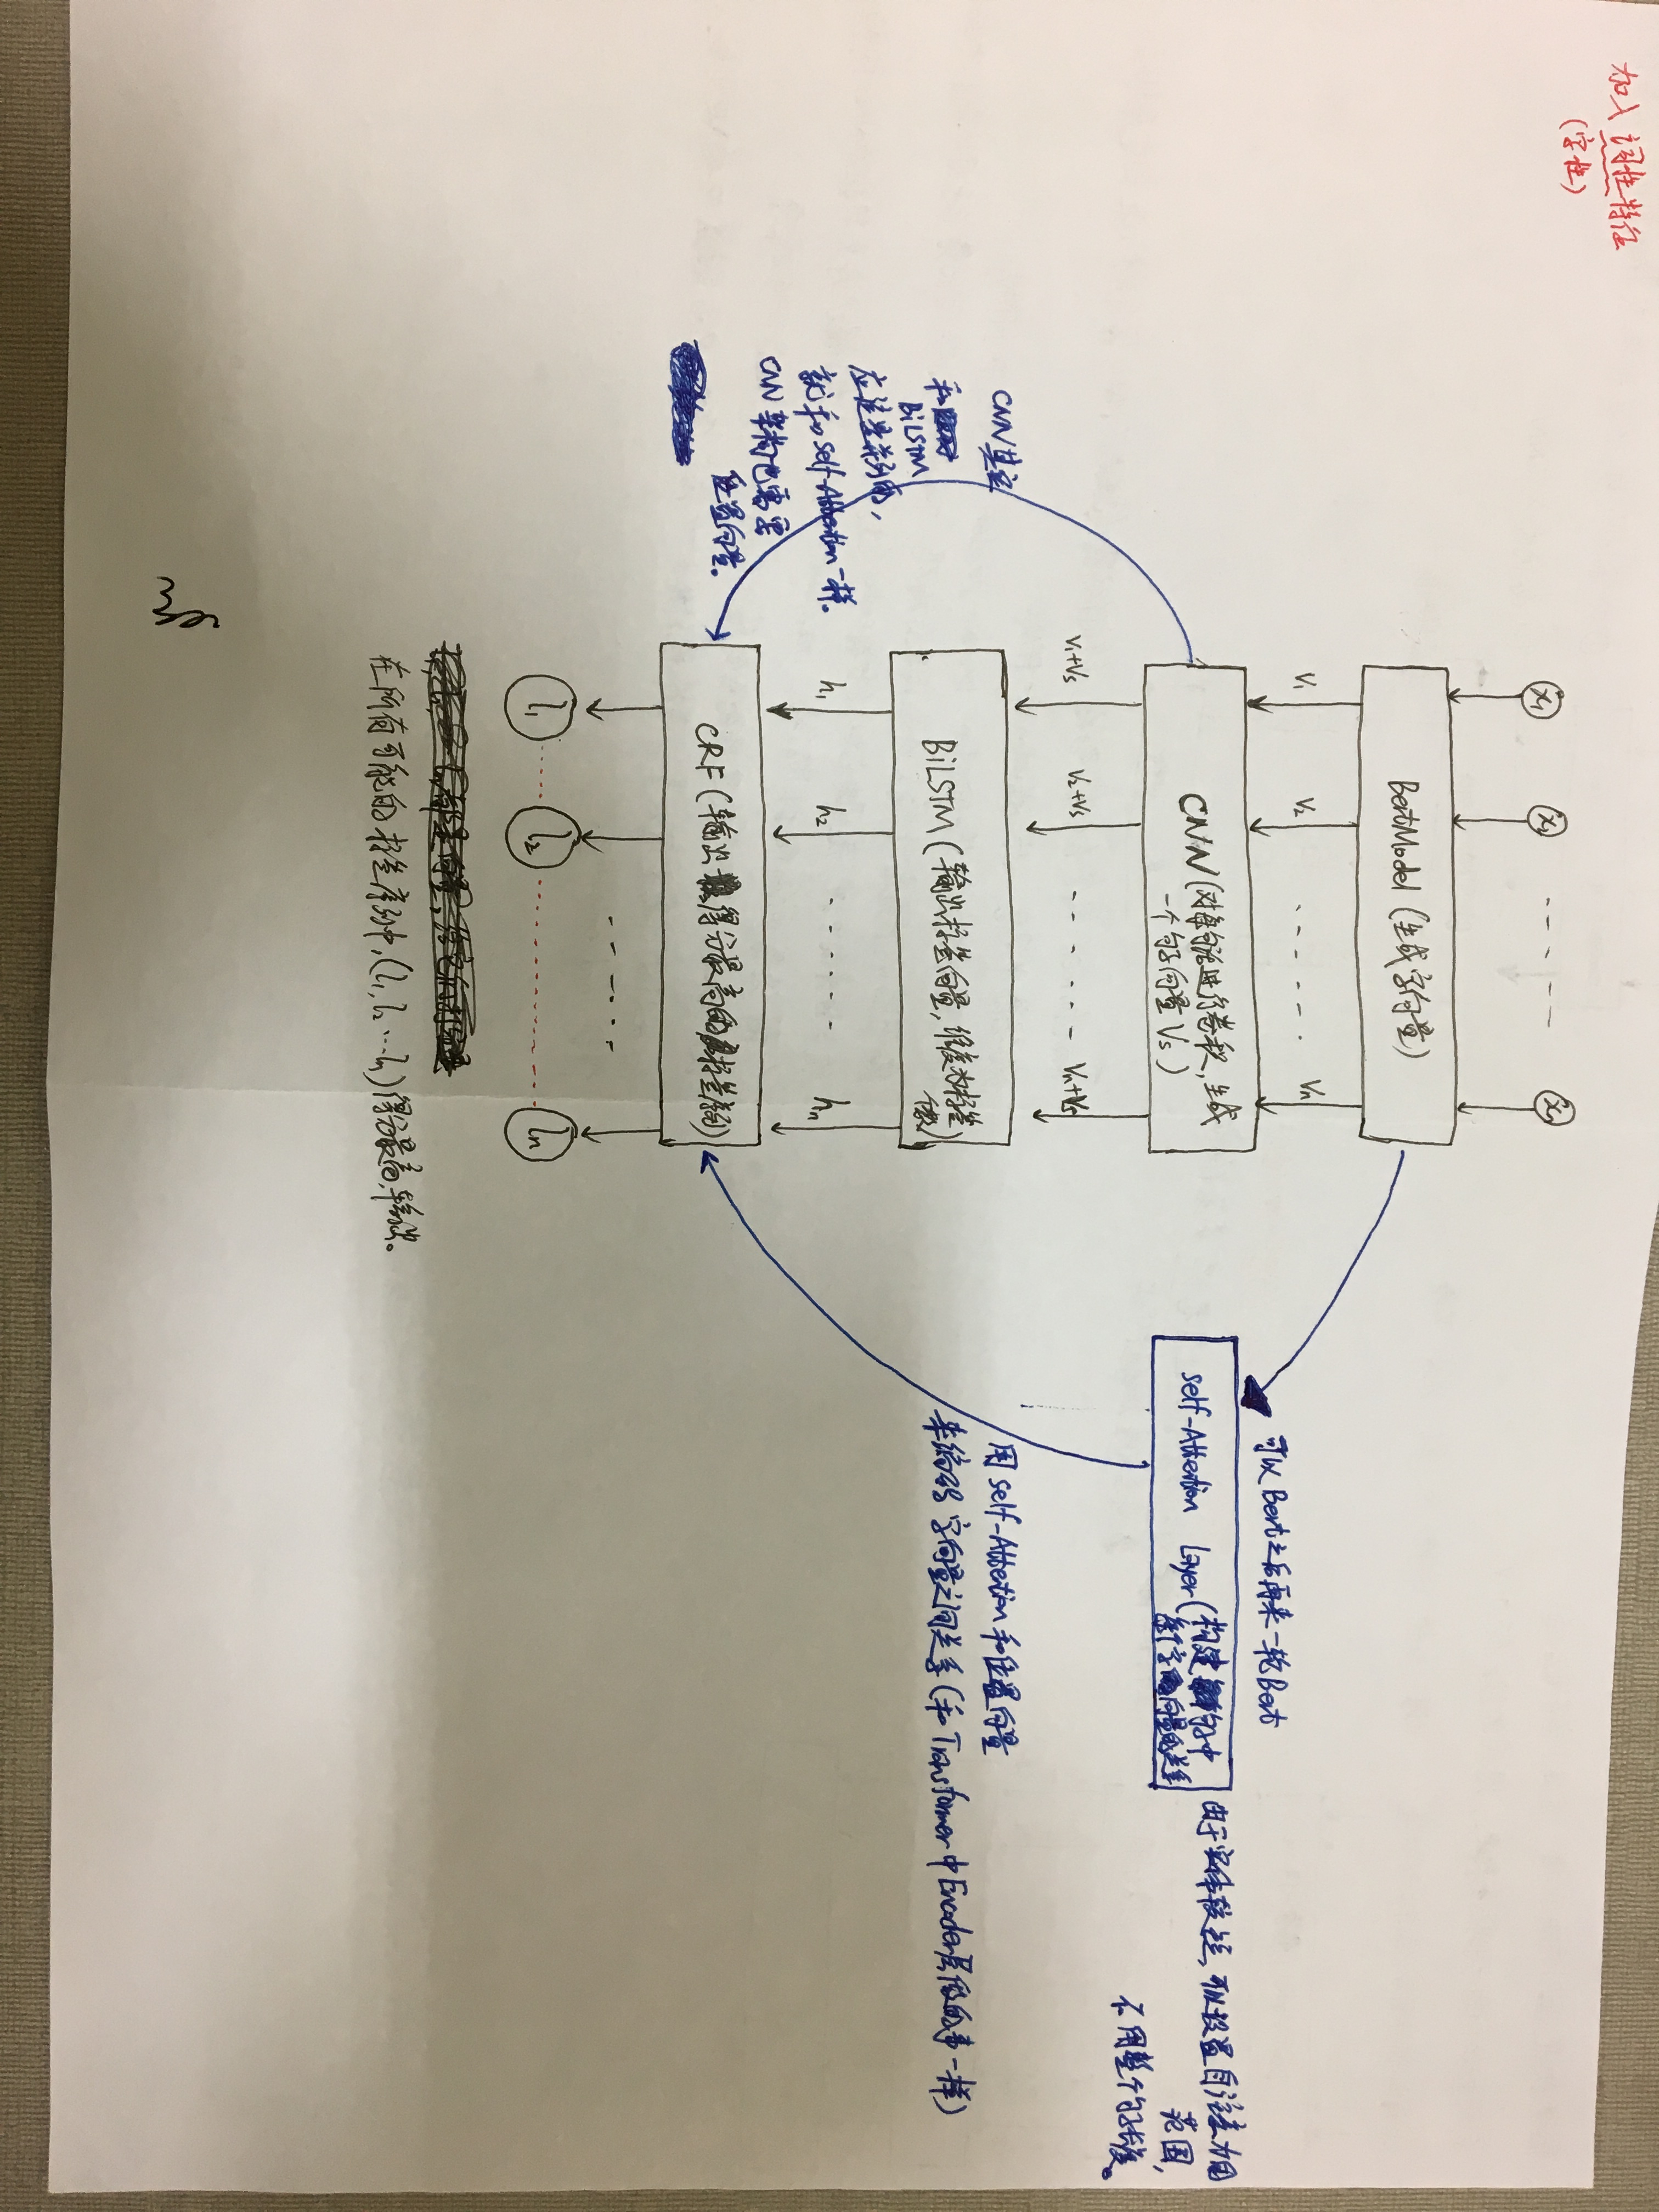 加入词性特征
(字性)
x₁ x₂ xₙ
BertModel (生成字向量)
V₁ V₂ Vₙ
CNN (对每句话进行卷积, 生成
一个句子向量 Vs)
V₁+Vs V₂+Vs Vₙ+Vs
BiLSTM (输出标签向量, 维度为标签
个数)
h₁ h₂ hₙ
CRF (输出得分最高的标签序列)
l₁ l₂ lₙ
在所有可能的标签序列中, (l₁, l₂ … lₙ) 得分最高, 输出。
CNN其实
和
BiLSTM
应该是并列的,
就和self-Attention一样。
CNN 架构也需要
位置向量。
可以 Bert之后再来一轮Bert
self-Attention Layer (构建句中
每个字向量的关系
由于实体较短, 可以设置自注意力的
范围,
不用整个句子长度。
用 self-Attention 和位置向量
来编码 字向量之间关系 (和 Transformer 中 Encoder层做的事一样)